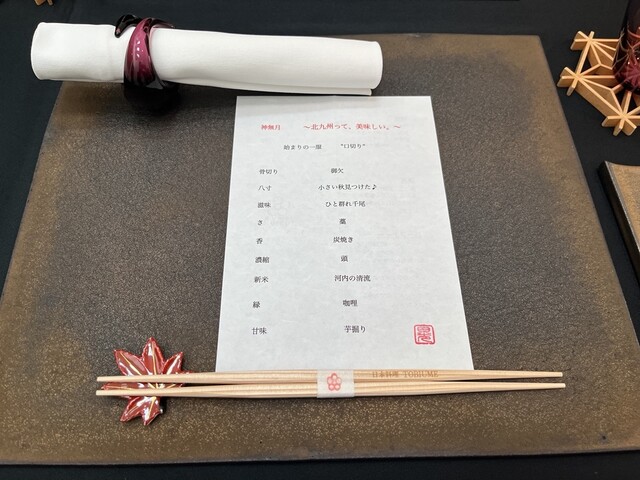 神無月 ～北九州って、美味しい。～
始まりの一服 "口切り"
骨切り 御欠
八寸 小さい秋見つけた♪
滋味 ひと群れ千尾
さ 藁
香 炭焼き
濃縮 頭
新米 河内の清流
縁 咖喱
甘味 芋掘り
日本料理 TOBIUME